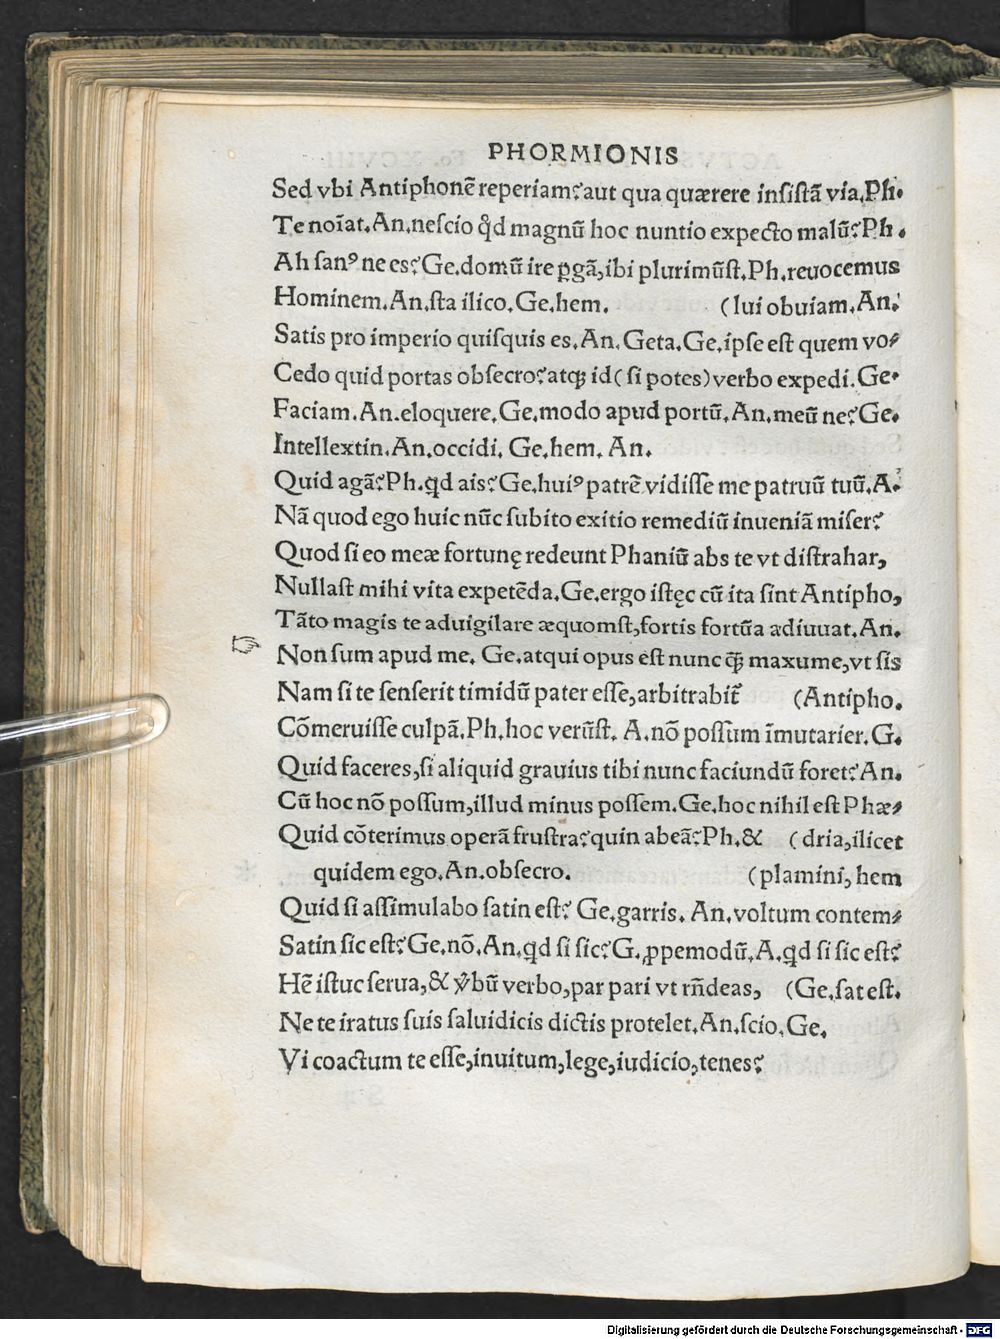 PHORMIONIS
Sed vbi Antiphonē reperiam? aut qua quærere inſiſtā via. Ph.
Te noīat. An. neſcio qd̄ magnū hoc nuntio expecto malū? Ph.
Ah ſanꝰ ne es? Ge. domū ire ꝑgā, ibi plurimūſt. Ph. reuocemus
Hominem. An. ſta ilico. Ge. hem. (lui obuiam. An.
Satis pro imperio quiſquis es. An. Geta. Ge. ipſe eſt quem vo⸗
Cedo quid portas obſecro? atqꝫ id (ſi potes) verbo expedi. Ge.
Faciam. An. eloquere. Ge. modo apud portū. An. meū ne? Ge.
Intellextin. An. occidi. Ge. hem. An.
Quid agā? Ph. qd ais? Ge. huiꝰ patrē vidiſſe me patruū tuū. A.
Nā quod ego huic nūc ſubito exitio remediū inueniā miſer?
Quod ſi eo meæ fortunę redeunt Phaniū abs te vt diſtrahar,
Nullaſt mihi vita expetēda. Ge. ergo iſtęc cū ita ſint Antipho,
Tāto magis te aduigilare æquomſt, fortis fortūa adiuuat. An.
☞ Non ſum apud me. Ge. atqui opus eſt nunc qꝫ̄ maxume, vt ſis
Nam ſi te ſenſerit timidū pater eſſe, arbitrabit᷑ (Antipho.
Cōmeruiſſe culpā. Ph. hoc verūſt. A. nō poſſum īmutarier. G.
Quid faceres, ſi aliquid grauius tibi nunc faciundū foret? An.
Cū hoc nō poſſum, illud minus poſſem. Ge. hoc nihil eſt Phæ⸗
Quid cōterimus operā fruſtra? quin abeā? Ph. & (dria, ilicet
quidem ego. An. obſecro. (plamini, hem
Quid ſi aſſimulabo ſatin eſt? Ge. garris. An. voltum contem⸗
Satin ſic eſt? Ge. nō. An. qd ſi ſic? G. ꝓpemodū. A. qd ſi ſic eſt?
Hē iſtuc ſerua, & v̄bū verbo, par pari vt rn̄deas, (Ge. ſat eſt.
Ne te iratus ſuis ſaluidicis dictis protelet. An. ſcio. Ge.
Vi coactum te eſſe, inuitum, lege, iudicio, tenes?
Digitalisierung gefördert durch die Deutsche Forschungsgemeinschaft - DFG